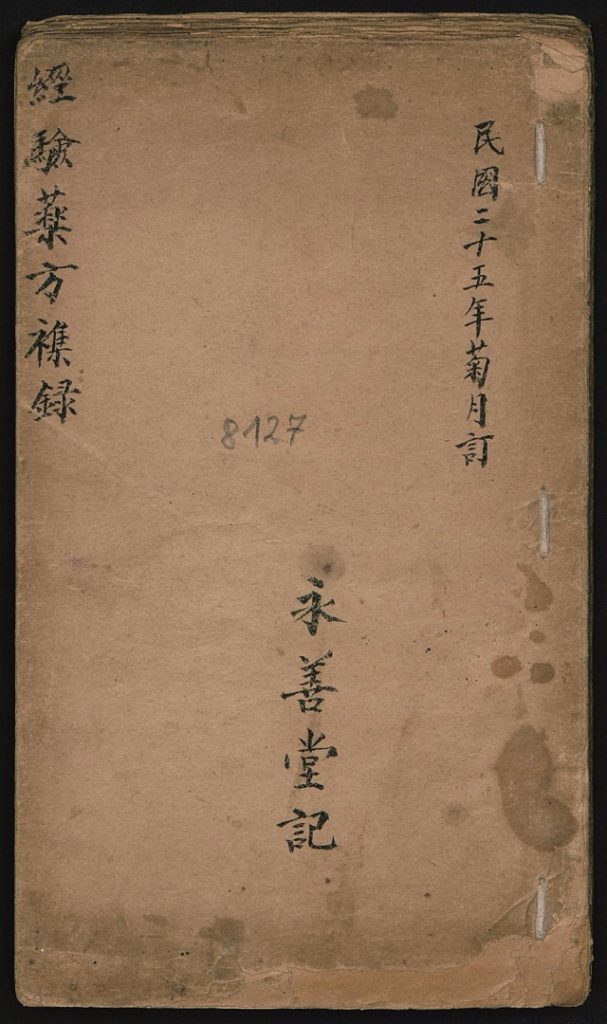 民國二十五年菊月訂
永善堂記
8127
經驗薬方襍録